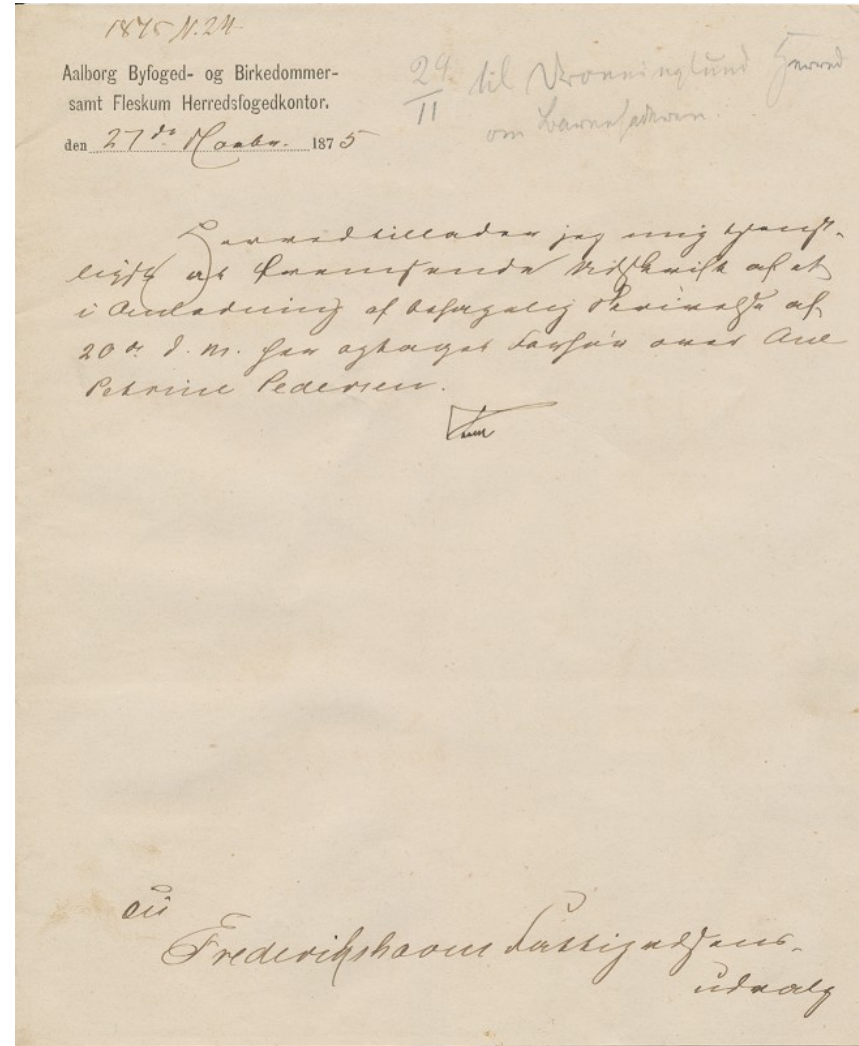 1875 N. 24
Aalborg Byfoged- og Birkedommer-
samt Fleskum Herredsfogedkontor.
den 27de Novbr. 1875
29/11 til Dronninglund Herred
om Barnefaderen.
Herved tillader jeg mig tjenst-
ligst at fremsende Udskrift af et
i Anledning af behagelig Skrivelse af
20de d. M. her optaget Forhør over Ane
Petrine Pedersen.
Til
Frederikshavns Fattigvæsens-
udvalg